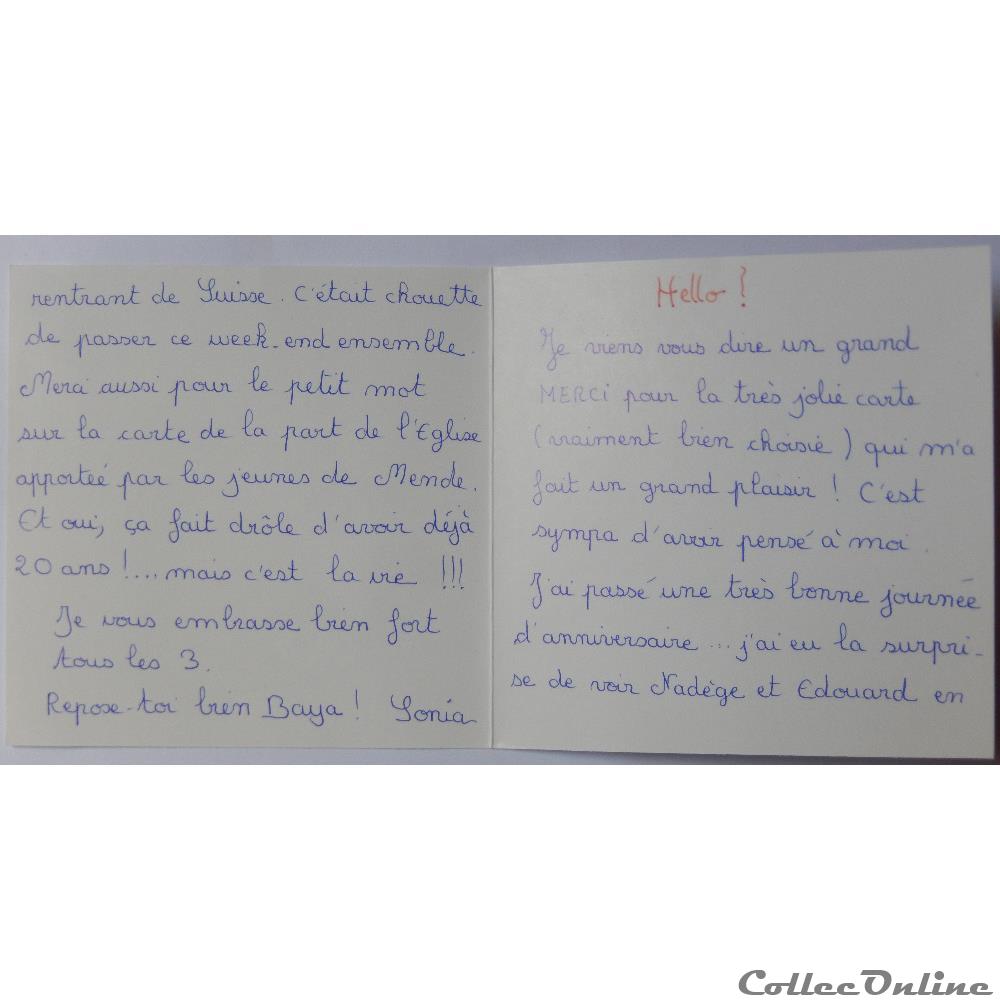 Hello !
Je viens vous dire un grand
MERCi pour la très jolie carte
(vraiment bien choisie) qui m'a
fait un grand plaisir ! C'est
sympa d'avoir pensé à moi.
J'ai passé une très bonne journée
d'anniversaire ... j'ai eu la surpri-
se de voir Nadège et Edouard en
rentrant de Suisse. C'était chouette
de passer ce week-end ensemble.
Merci aussi pour le petit mot
sur la carte de la part de l'Eglise
apportée par les jeunes de Mende.
Et oui, ça fait drôle d'avoir déjà
20 ans !... mais c'est la vie !!!
Je vous embrasse bien fort
tous les 3.
Repose-toi bien Baya ! Sonia
CollecOnline